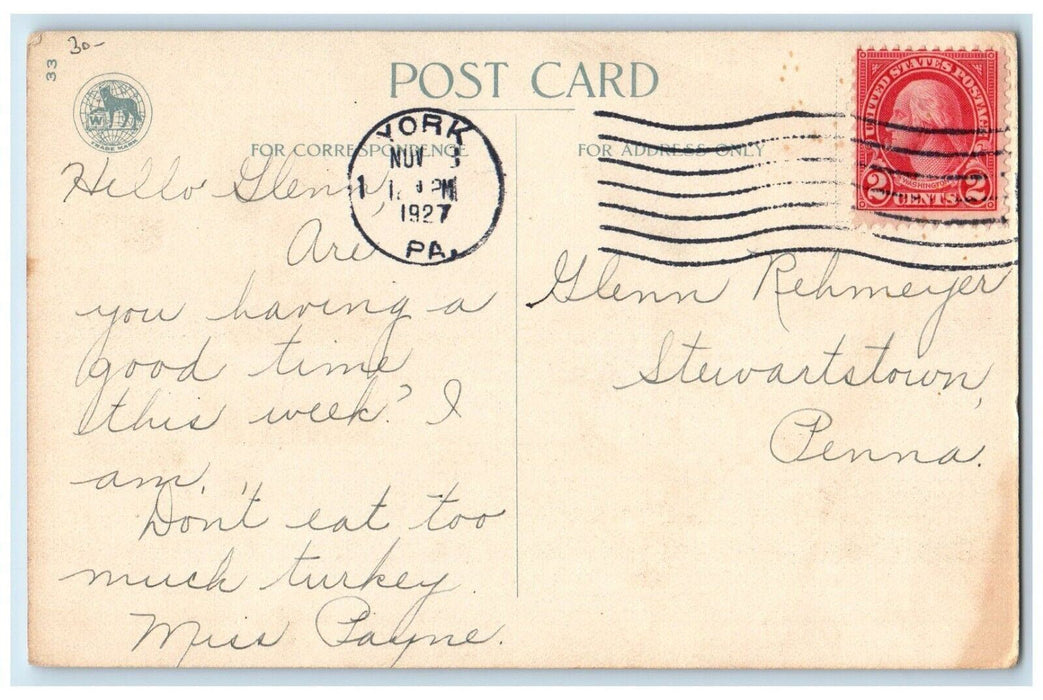 33
30-
POST CARD
W
TRADE MARK
FOR CORRESPONDENCE
FOR ADDRESS ONLY
YORK
NOV
PM
1927
PA.
UNITED STATES POSTAGE
WASHINGTON
2 CENTS 2
Hello Glenn,
Are
you having a
good time
this week? I
am.
Don't eat too
much turkey.
Miss Payne.
Glenn Rehmeyer
Stewartstown,
Penna.